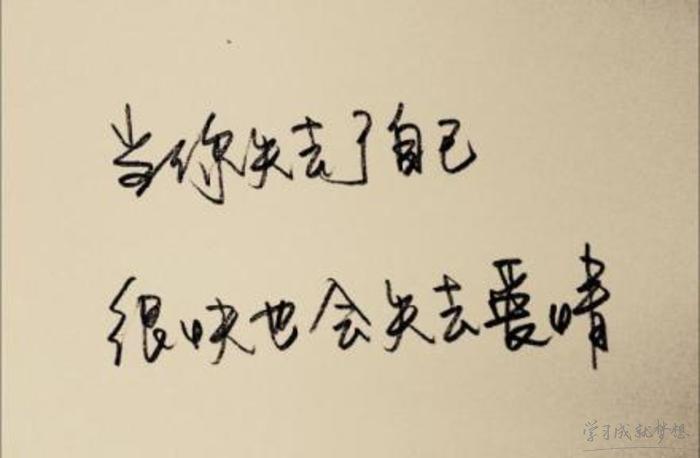 当你失去了自己
很快也会失去爱情
学习成就梦想